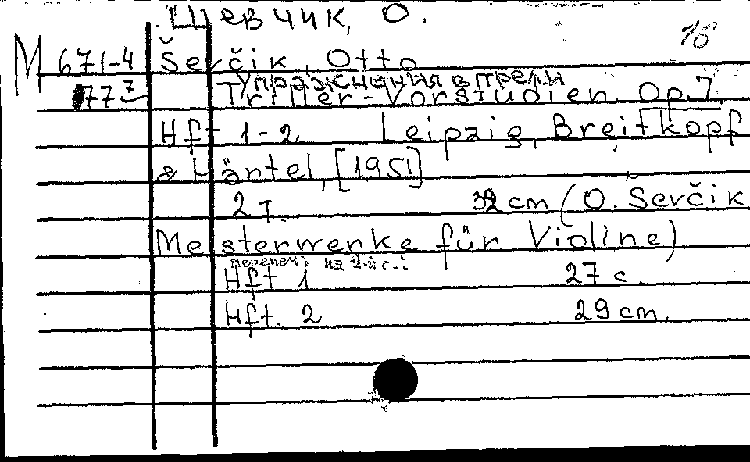 Шевчик, О.
М 671-4 Ševčik, Otto
777 Упражнения в трели
Triller-Vorstudien. Op. 7.
Hft 1-2. Leipzig, Breitkopf
& Häntel, [1951]
2 т. 32 cm (O. Ševčik
Meisterwerke für Violine)
Hft 1 27 с.
Hft. 2 29 cm.